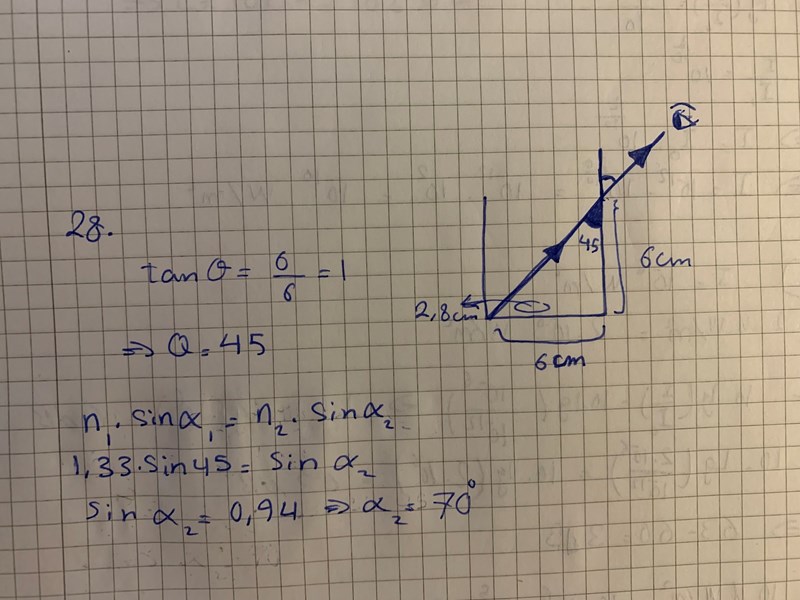 28.
tan θ = 6/6 = 1
⇒ θ = 45
n₁ · sin α₁ = n₂ · sin α₂
1,33 · sin 45 = sin α₂
sin α₂ = 0,94 ⇒ α₂ = 70°
45
6cm
2,8cm
6cm